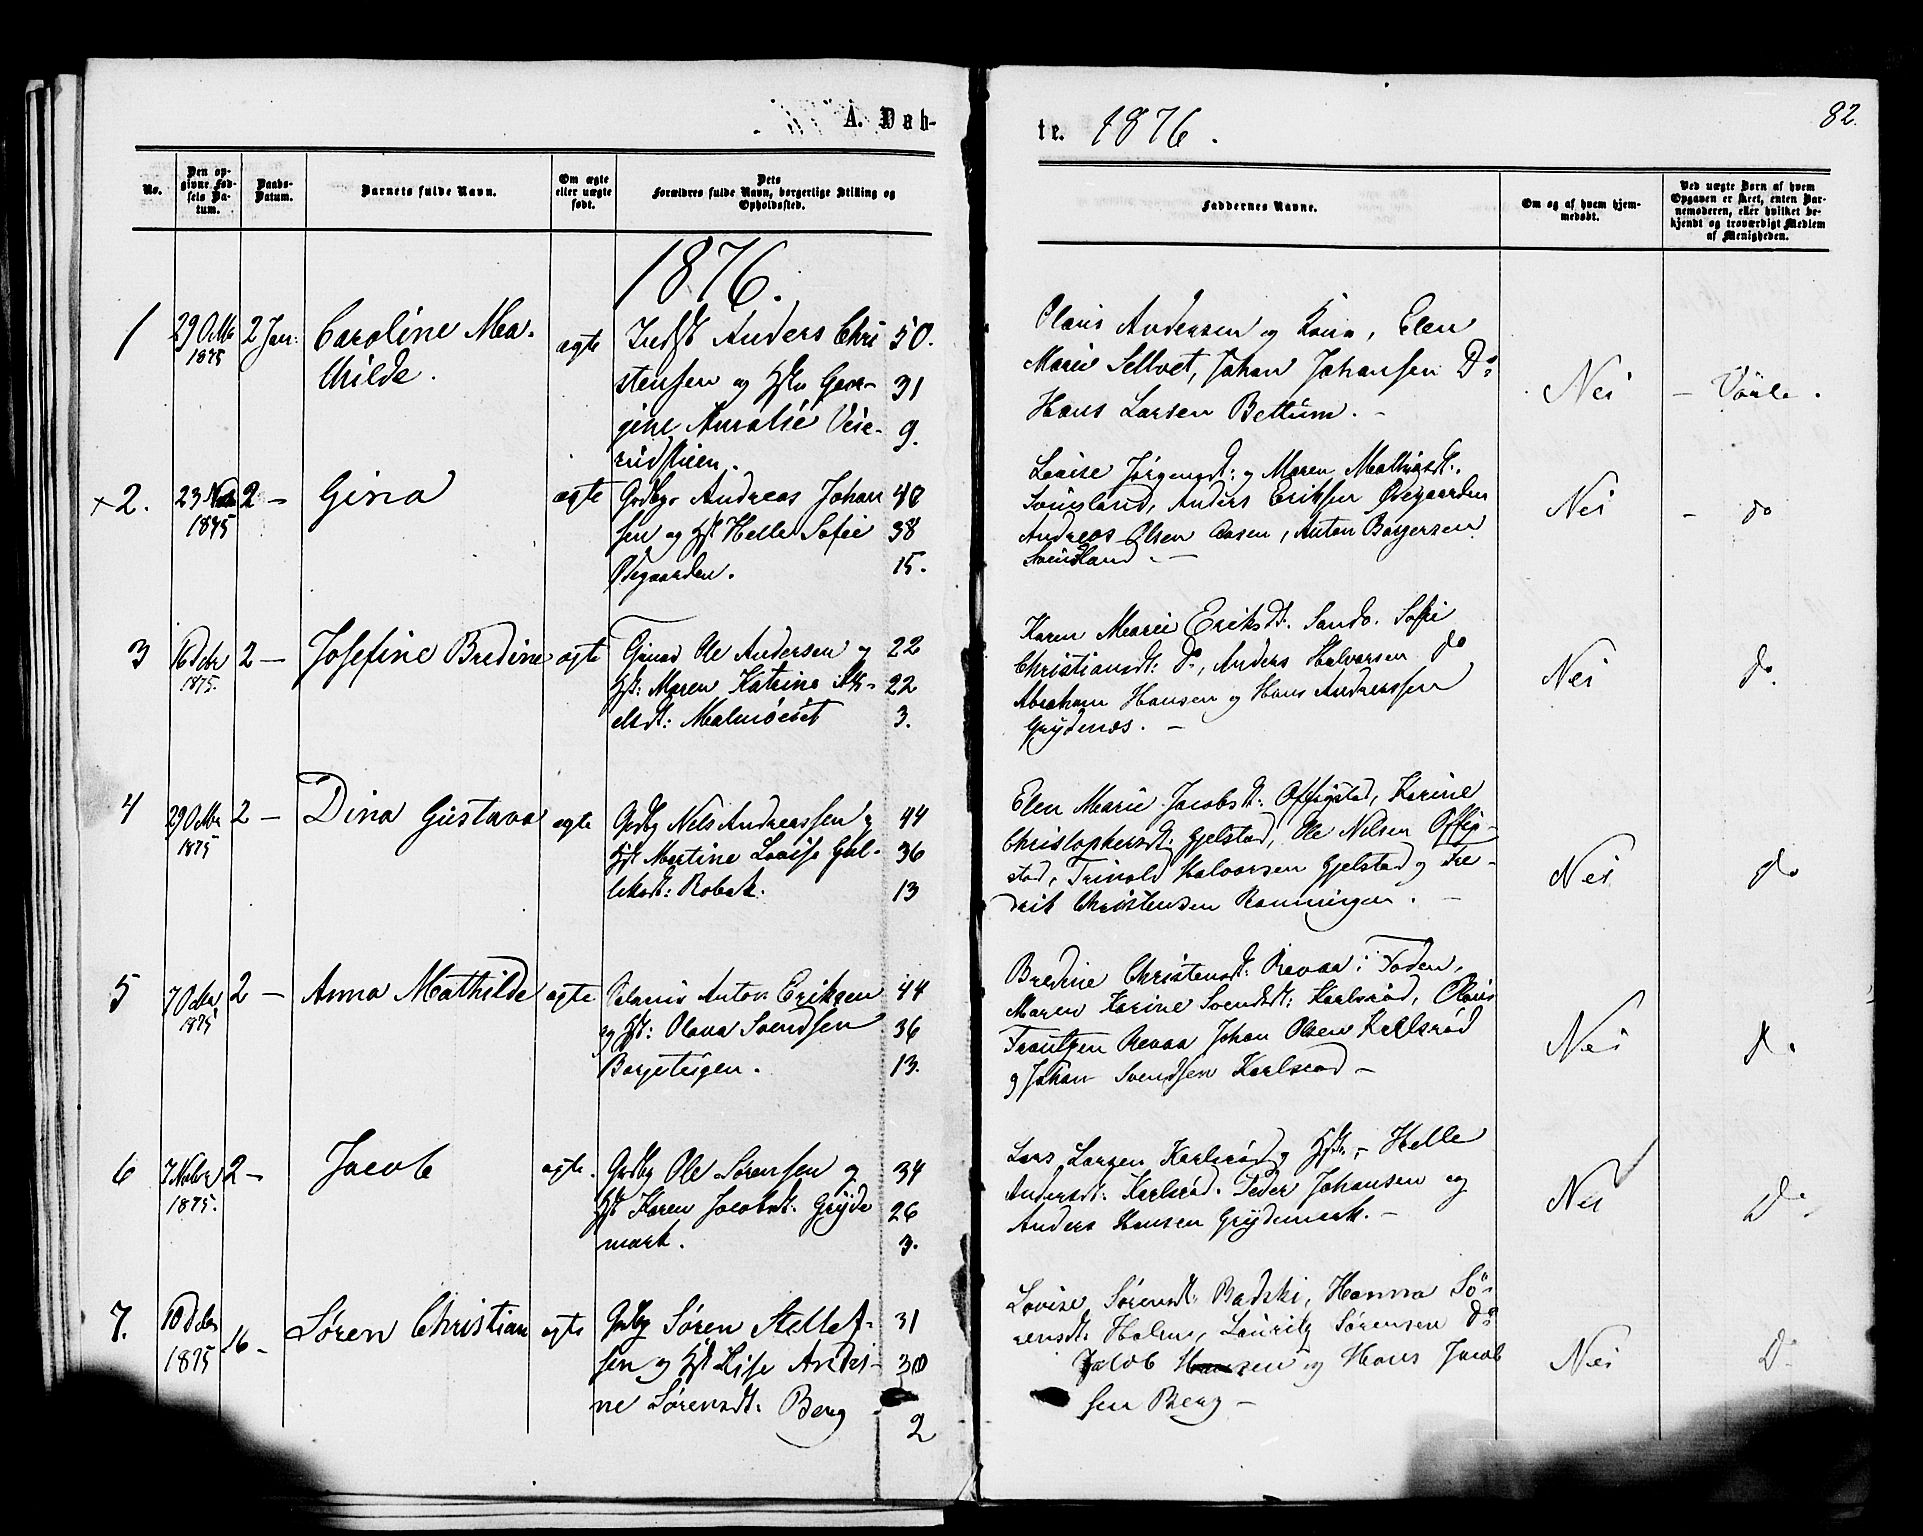 A. Døb-
te. 1876.
82.
No.
Den op-
givne Fød-
sels Da-
tum.
Daabs-
Datum.
Barnets fulde Navn.
Om ægte
eller uægte
født.
Dets
Forældres fulde Navn, borgerlige Stilling og
Opholdssted.
Faddernes Navne.
Om og af hvem hjem-
medøbt.
Ved uægte Børn af hvem
Opgaven er skeet, enten Bar-
nemoderen, eller hvilket be-
kjendt og troværdigt Medlem
af Menigheden.
1876.
1
29 Octbr
1875
2 Jan:
Caroline Ma-
thilde.
ægte
Indst Anders Chri
stensen og Hstr Geor-
gine Amalie Veie-
rudstuen.
50.
31
9.
Olaus Andersen og Kone, Elen
Marie Sellvet, Johan Johansen Do
Hans Larsen Bettum. -
Nei
- Våle.
x 2.
23 Nobr
1875
2 -
Gina
ægte
Grdbgr Andreas Johan
sen og Hst Helle Sofie
Ødegaarden.
40
38
15.
Lovise Jørgensdt: og Maren Mathiasdt:
Svinsland, Anders Eriksen Ødegaarden
Andreas Olsen Aasen, Anton Borgersen
Svinsland. -
Nei
- do
3
16 Debr
1875.
2 -
Josefine Bredine
ægte
Gmd Ole Andersen og
Hst: Maren Katrine
elsdt: Malmøeiet
22
22
3.
Karen Marie Eriksdt. Sando. Sofie
Christiansdt: Do, Anders Halvorsen do
Abraham Hansen og Hans Andreassen
Grydenes. -
Nei
do.
4
29 Octbr
1875
2 -
Dina Gustava
ægte
Grdbg Nels Andreassen og
Hst Martine Lovise Gul-
liksdt: Robak.
44
36
13
Elen Marie Jacobsdt: Offigstad, Karine
Christophersdt: Gjelstad, Ole Nilsen Offig-
stad, Trinold Halvorsen Gjelstad og Fre-
drik Christensen Rønningen. -
Nei
do
5
7 Octbr
1875
2 -
Anna Mathilde
ægte
Anton Eriksen
og Hst: Olava Svendsen
Borgeteigen.
44
36
13.
Bredine Christensdt: Revaa i Foden,
Maren Karine Svendsdt: Karlsrød, Olaus
Frantzen Revaa Johan Olsen Karlsrød
og Johan Svendsen Karlsrød -
Nei
do
6
7 Nobr
1875.
2 -
Jacob
ægte.
Grdbg Ole Sørensen og
Hst Karen Jacobsdt. Gryde
mark.
34
26
3.
Lars Larsen Karlsrød og Hstr, - Helle
Andersdt: Karlsrød. Peder Johansen og
Anders Hansen Grydemark. -
Nei
Do.
7.
10 Debr
1875
16 -
Søren Christian
ægte
Grdbg Søren Stellef-
sen og Hst Lise Andri-
ne Sørensdt: Berg
31
30
2
Lovise Sørensdt: Badski, Hanna Sö-
rensdt: Holm, Lauritz Sørensen Do
Jacob Hansen og Hans Jacob
sen Berg -
Nei
Do